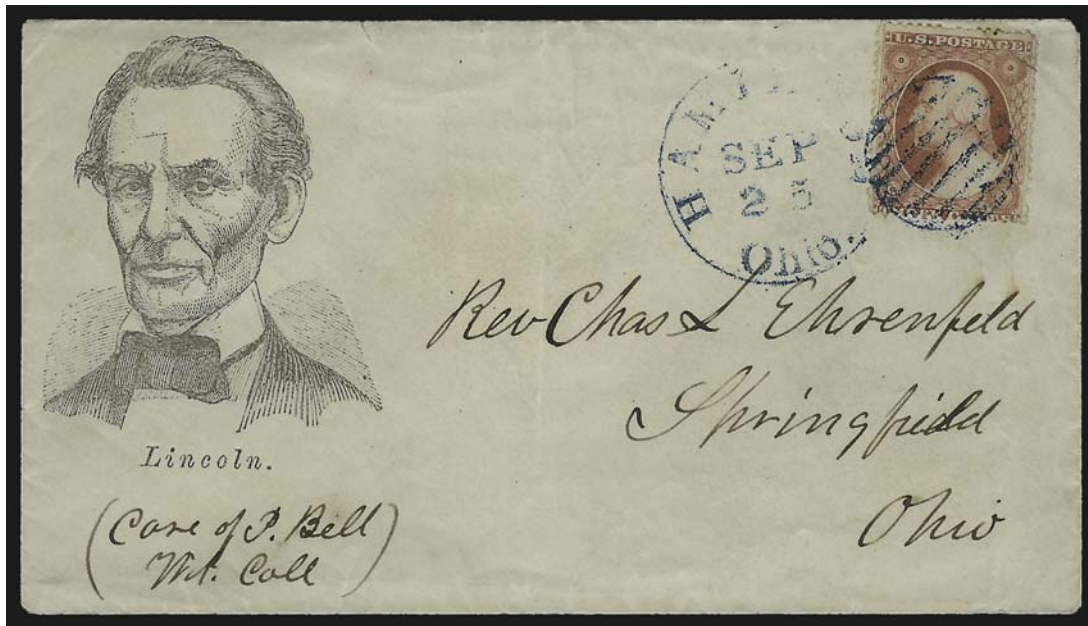 U.S. POSTAGE
HAM
SEP
25
Ohio.
Rev Chas L Ehrenfeld
Springfield
Ohio
Lincoln.
(Care of P. Bell
Wit. Coll)